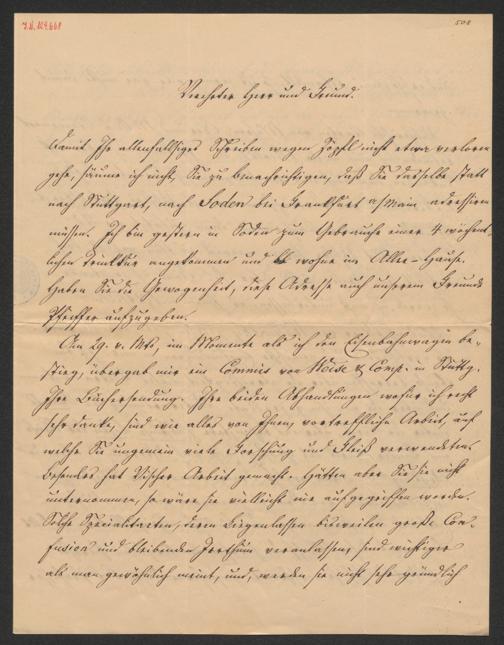 I.N. 109.668
508
Verehrter Herr und Freund.
Damit Ihr allenfallsiges Schreiben wegen Zöpfl nicht etwa verloren
gehe, säume ich nicht, Sie zu benachrichtigen, daß Sie dasselbe statt
nach Stuttgart, nach Soden bei Frankfurt a/Main adressiren
müssen. Ich bin gestern in Soden zum Gebrauche einer 4 wöchent-
lichen Trinkkur angekommen und wohne im Allee-Hause.
Haben Sie die Gewogenheit, diese Adresse auch unserem Freunde
Pfeiffer aufzugeben.
Am 29. v. Mts. im Momente als ich den Eisenbahnwagen be-
stieg, übergab mir ein Commis von & Comp. in Stuttg.
Ihre Büchersendung. Ihre beiden Abhandlungen wofür ich recht
sehr danke, sind wie alles von Ihnen, vortreffliche Arbeit, auf
welche Sie ungemein viele Forschung und Fleiß verwendeten.
Besonders hat Arbeit gemacht. Hätten aber Sie sie nicht
unternommen, so wäre sie vielleicht nie aufgegriffen worden.
Solche Specialitaeten, deren bisweilen große Con-
fusion und bleibenden Irrthum veranlassen, sind wichtiger
als man gewöhnlich meint, und, werden sie nicht sehr gründlich